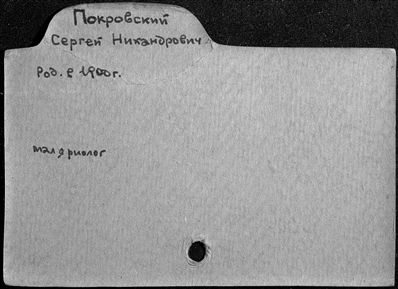 Покровский
Сергей Никандрович
Род. в 1900г.
маляриолог